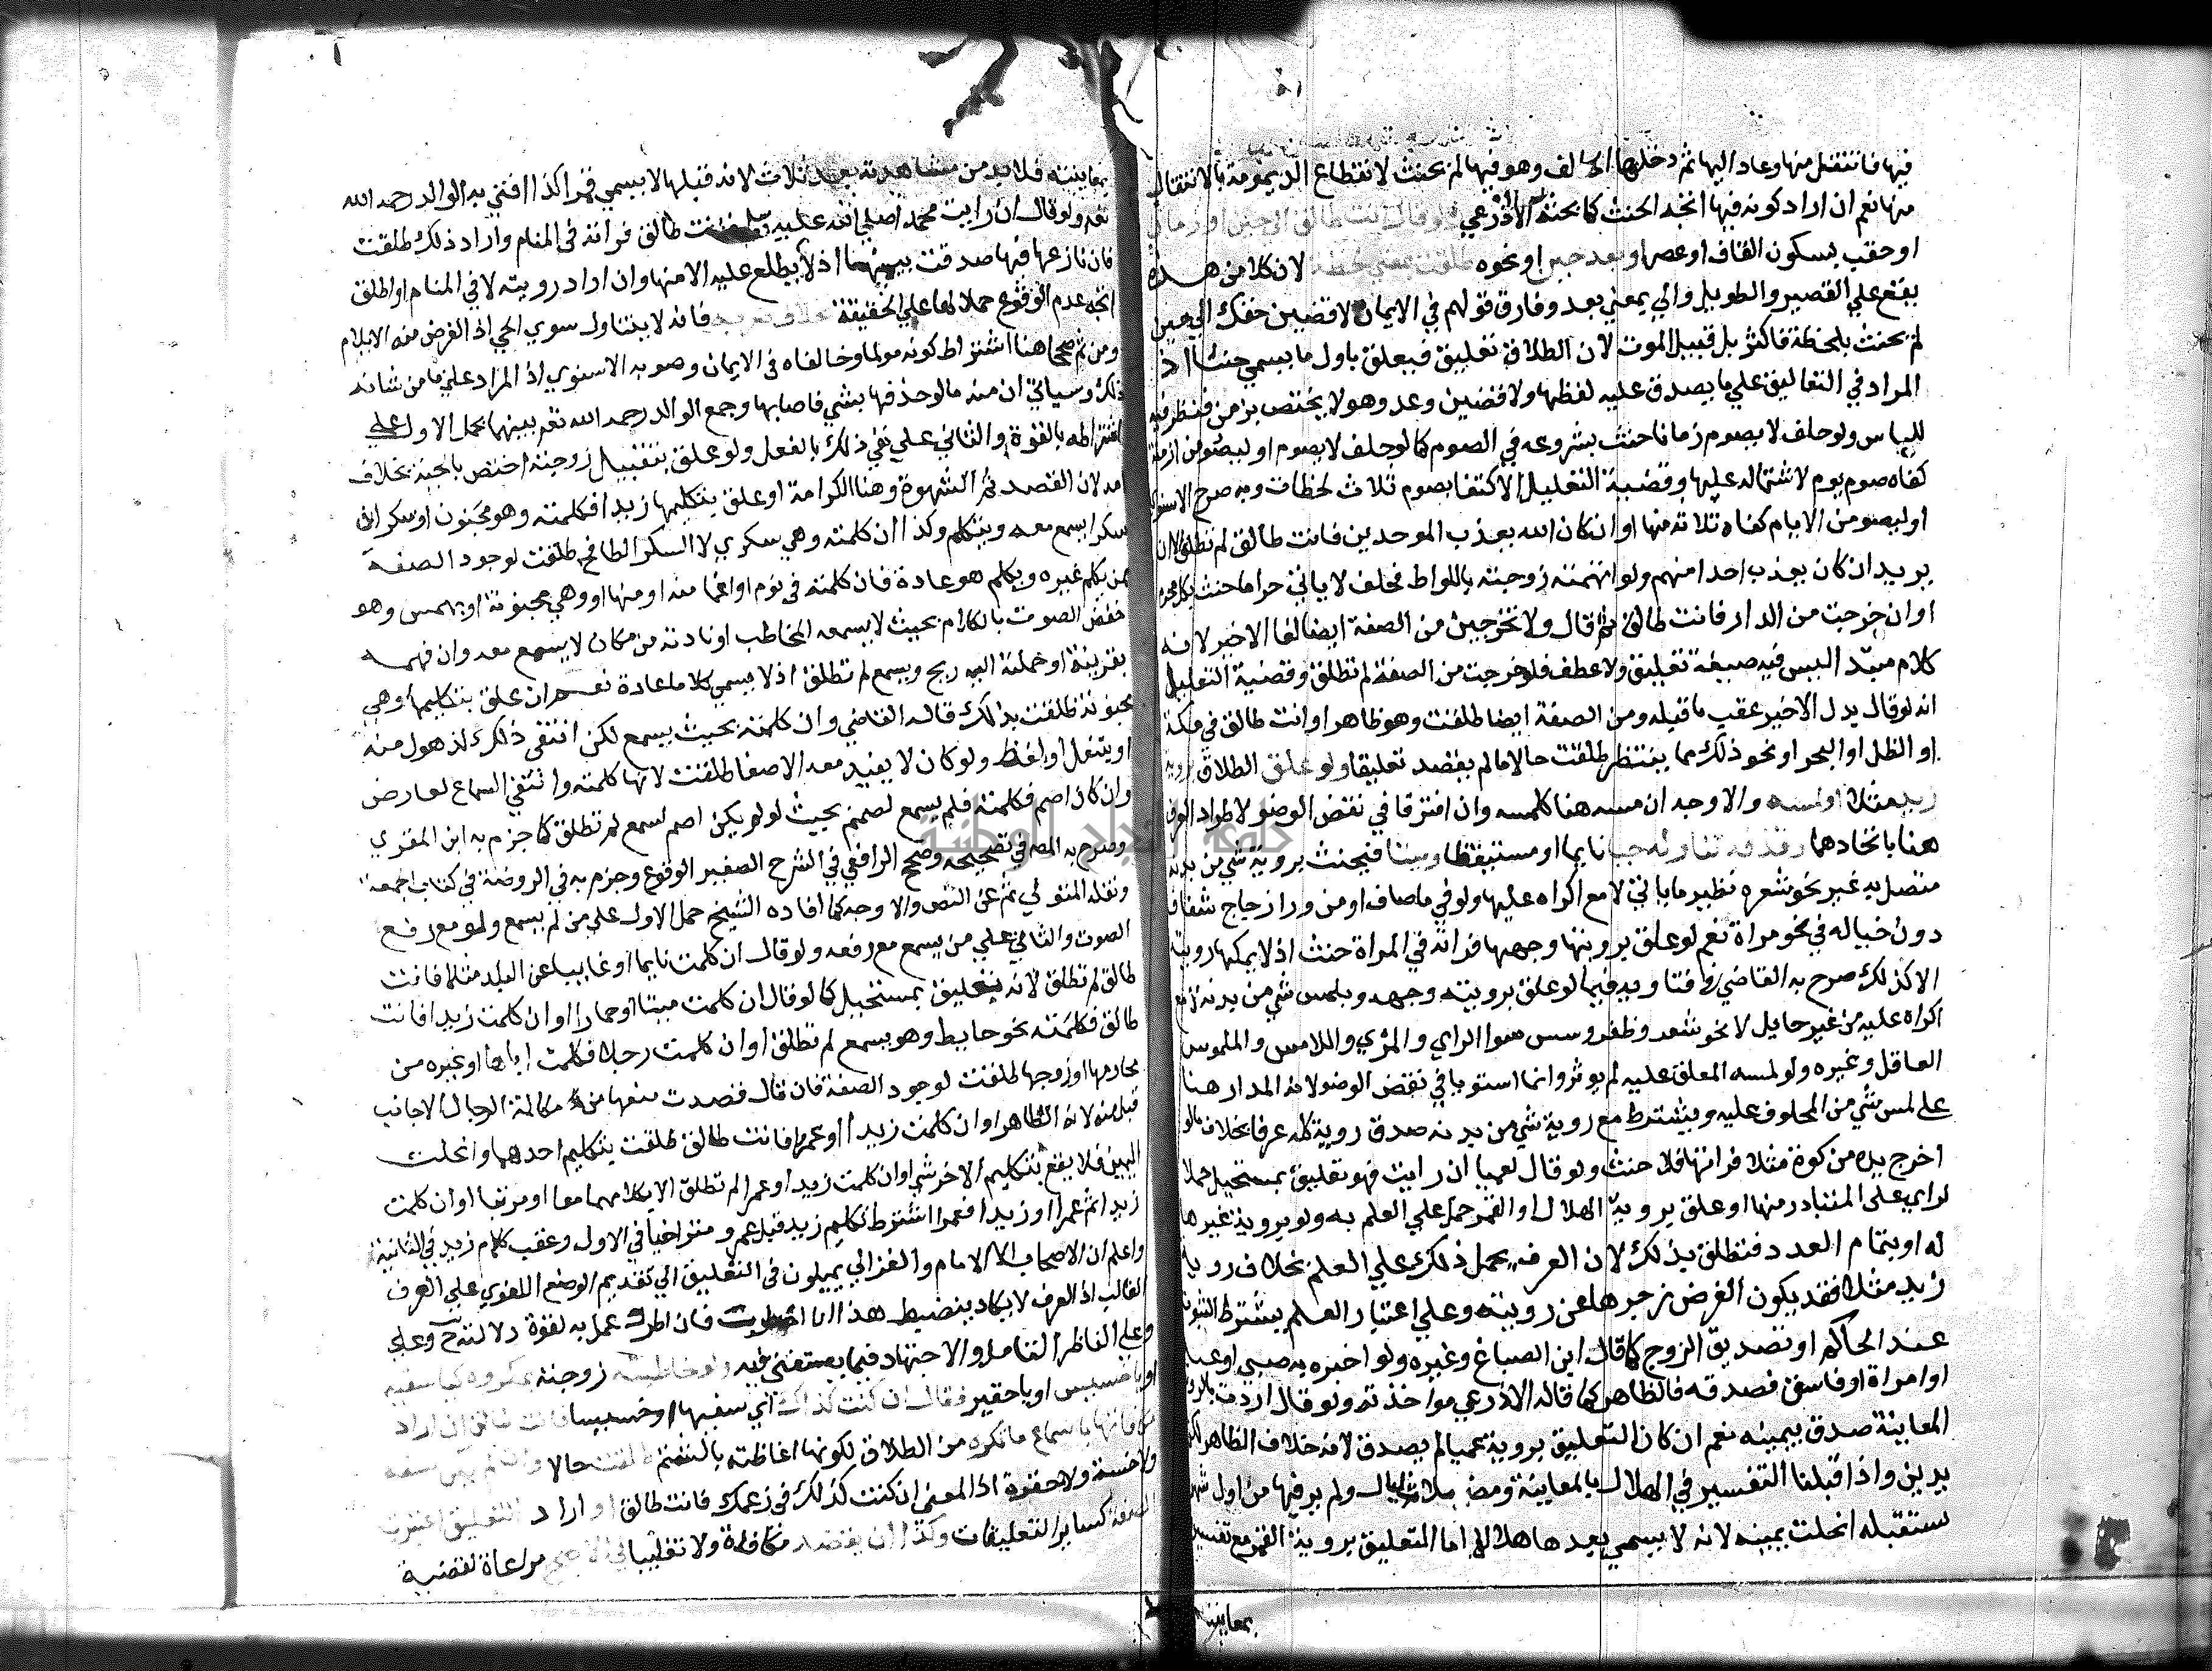 فيها فانتقل منها وعاد اليها ثم دخلها الحالف وهو فيها لم يحنث لانقطاع الديمومة بالانتقال
منها نعم ان اراد كونه فيها اتجه الحنث كما بحثه الاذرعي ولو قال انت طالق الى حين او زمان
او حقب بسكون القاف او عصر او بعد حين او نحوه طلقت بمضي لحظة لان كلا من هذه
يقع علي القصير والطويل والي بمعني بعد وفارق قولهم في الايمان لاقضين حقك الي حين
لم يحنث بلحظة فاكثر بل قبيل الموت لان الطلاق تعليق فيعلق باول ما يسمي حينا اذ
المراد في التعاليق علي ما يصدق عليه لفظها ولاقضين وعد وهو لا يختص بزمن فنظر فيه
لليأس ولو حلف لا يصوم زمانا حنث بشروعه في الصوم كما لو حلف لا يصوم او ليصومن ازمنة
كفاه صوم يوم لاشتماله عليها وقضية التعليل الاكتفا بصوم ثلاث لحظات وبه صرح الاسنوي
او ليصومن الايام كفاه ثلاثة منها او ان كان الله يعذب الموحدين فانت طالق لم تطلق الا ان
يريد ان كان يعذب احدا منهم ولو اتهمته زوجته باللواط فحلف لا ياتي حراما حنث بكل محرم
او ان خرجت من الدار فانت طالق ثم قال ولا تخرجين من الصفة ايضا لغا الاخير لانه
كلام مبتدا ليس فيه صيغة تعليق ولا عطف فلو خرجت من الصفة لم تطلق وقضية التعليل
انه لو قال بدل الاخير عقب ما قبله ومن الصفة ايضا طلقت وهو ظاهر او انت طالق في مكة
او الظل او البحر او نحو ذلك مما ينتظر طلقت حالا ما لم يقصد تعليقا ولو علق الطلاق بروية
زيد مثلا او لمسه والاوجه ان مسه هنا كلمسه وان افترقا في نقض الوضو لاطراد العرف
هنا باتحادهما وقذفه تناوله حيا نايما او مستيقظا وميتا فيحنث بروية شي من بدنه
متصل به غير نحو شعره نظير ما ياتي لا مع اكراه عليها ولو في ما صاف او من ورا زجاج شفاف
دون خياله في نحو مراة نعم لو علق برويتها وجهها فراته في المراة حنث اذ لا يمكنها رويته
الا كذلك صرح به القاضي في فتاويه فيما لو علق برويته وجهه وبلمس شي من بدنه لا مع
اكراه عليه من غير حايل لا نحو شعر وظفر وسن سوا الراي والمرئي واللامس والملموس
العاقل وغيره ولو لمسه المعلق عليه لم يوثر وانما استويا في نقض الوضو لان المدار هنا
علي لمس شي من المحلوف عليه ويشترط مع روية شي من بدنه صدق روية كله عرفا بخلاف ما لو
اخرج يده من كوة مثلا فراتها فلا حنث ولو قال لعميا ان رايت فهو تعليق بمستحيل حملا
لراي على المتبادر منها او علق بروية الهلال او القمر حمل علي العلم به ولو بروية غيرها
له او بتمام العدد فتطلق بذلك لان العرف يحمل ذلك علي العلم بخلاف روية
زيد مثلا فقد يكون الغرض زجرها عن رويته وعلي اعتبار العلم يشترط الثبوت
عند الحاكم او تصديق الزوج كما قاله ابن الصباغ وغيره ولو اخبره به صبي او عبد
او امراة او فاسق فصدقه فالظاهر كما قاله الاذرعي مواخذته ولو قال اردت بالروية
المعاينة صدق بيمينه نعم ان كان التعليق بروية عميا لم يصدق لانه خلاف الظاهر لكن
يدين واذا قبلنا التفسير في الهلال بالمعاينة ومضى ثلاث ليال ولم ير فيها من اول شهر
ستقبله انحلت يمينه لانه لا يسمي بعدها هلالا اما التعليق بروية القمر مع تفسيره
بمعاينته
بمعاينته فلا بد من مشاهدته بعد ثلاث لانه قبلها لا يسمي قمرا كذا افتي به الوالد رحمه الله
تعه ولو قال ان رايت محمدا صلي الله عليه وسلم فانت طالق فراته في المنام واراد ذلك طلقت
فان نازعها فيها صدقت بيمينها اذ لا يطلع عليه الا منها وان اراد رويته لا في المنام او اطلق
اتجه عدم الوقوع حملا لها علي الحقيقة فانه لا يتناول سوي الحي اذ الغرض منه الايلام
ومن ثم صححا هنا اشتراط كونه مولما وخالفاه في الايمان وصوبه الاسنوي اذ المراد علي ما من شانه
ذلك وسياتي ان منه ما لو حذفها بشي فاصابها وجمع الوالد رحمه الله تعه بينهما بحمل الاول علي
اشتراطه بالقوة والثاني علي نفي ذلك بالفعل ولو علق بتقبيل زوجته اختص بالحية بخلاف
امه لان القصد ثم الشهوة وهنا الكرامة او علق بتكليمها زيدا فكلمته وهو مجنون او سكران
سكرا يسمع معه ويتكلم وكذا ان كلمته وهي سكري لا السكر الطافح طلقت لوجود الصفة
ممن يكلم غيره ويكلم هو عادة فان كلمته في نوم او اغما منه او منها او وهي مجنونة او بهمس وهو
خفض الصوت بالكلام بحيث لا يسمعه المخاطب او نادته من مكان لا يسمع معه وان فهمه
بقرينة او حملته اليه ريح وسمع لم تطلق اذ لا يسمي كلاما عادة نعم ان علق بتكليمها وهي
مجنونة طلقت بذلك قاله القاضي وان كلمته بحيث يسمع لكن انتفي ذلك لذهول منه
او شغل او لغط ولو كان لا يفيد معه الاصغا طلقت لانها كلمته وانتفي السماع لعارض
وان كان اصم فكلمته فلم يسمع لصمم بحيث لو لم يكن اصم لسمع لم تطلق كما جزم به ابن المقري
وصرح به المص في تصحيحه وصحح الرافعي في الشرح الصغير الوقوع وجزم به في الروضة في كتاب الجمعة
ونقله المتولي ثم عن النص والاوجه كما افاده الشيخ حمل الاول علي من لم يسمع ولو مع رفع
الصوت والثاني علي من يسمع مع رفعه ولو قال ان كلمت نايما او غايبا عن البلد مثلا فانت
طالق لم تطلق لانه تعليق بمستحيل كما لو قال ان كلمت ميتا او حمارا او ان كلمت زيدا فانت
طالق فكلمت نحو حايط وهو يسمع لم تطلق او ان كلمت رجلا فكلمت اباها او غيره من
محارمها او زوجها طلقت لوجود الصفة فان قال قصدت منعها من مكالمة الرجال الاجانب
قبل منه لانه الظاهر او ان كلمت زيدا او عمرا فانت طالق طلقت بتكليم احدهما وانحلت
اليمين فلا يقع بتكليم الاخر شي او ان كلمت زيدا وعمرا لم تطلق الا بكلامهما معا او مرتبا او ان كلمت
زيدا ثم عمرا او زيدا فعمرا اشترط تكليم زيد قبل عمرو متراخيا في الاول وعقب كلام زيد في الثانية
واعلم ان الاصحاب الا الامام والغزالي يميلون في التعليق الي تقديم الوضع اللغوي علي العرف
الغالب اذ العرف لا يكاد ينضبط هذا ان اضطرب فان اطرد عمل به لقوة دلالته ح وعلي
وعلي الناظر التامل والاجتهاد فيما يستفتي فيه ولو خاطبته زوجته بمكروه كيا سفيه
او يا خسيس او يا حقير فقال ان كنت كذاك اي سفيها او خسيسا فانت طالق ان اراد
مكافاتها باسماع ما تكره من الطلاق لكونها اغاظته بالشتم طلقت حالا وان لم يكن سفه
ولا خسة ولا حقرة اذ المعني ان كنت كذلك في زعمك فانت طالق او اراد التعليق اعتبرت
الصفة كساير التعليقات وكذا ان لم يقصد مكافاة ولا تعليقا في الاصح مراعاة لقضية